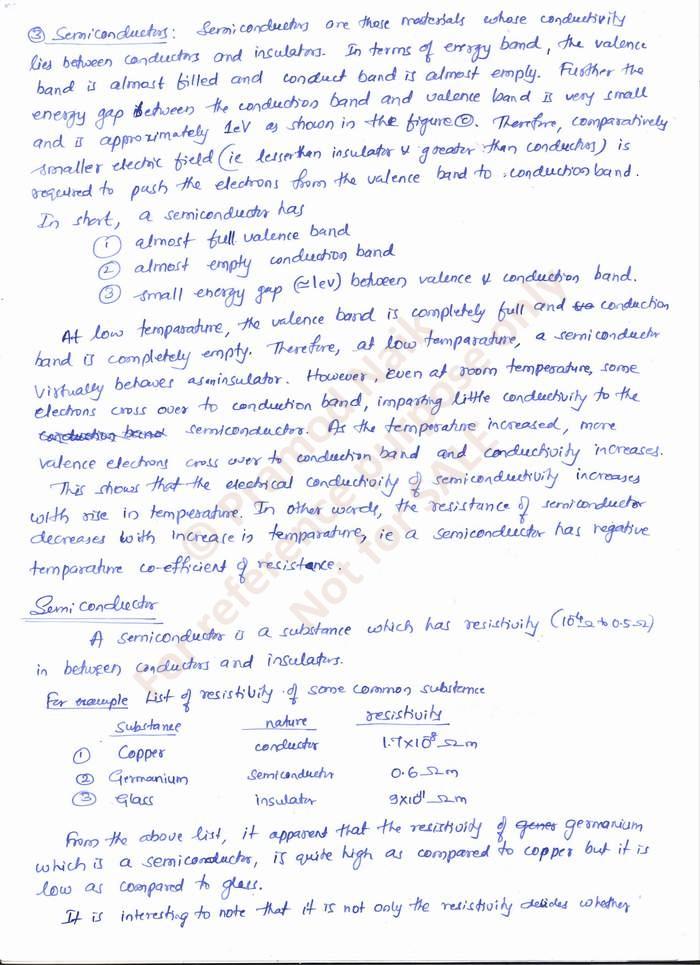 ③ Semiconductors: Semiconductors are those materials whose conductivity
lies between conductors and insulators. In terms of energy band, the valence
band is almost filled and conduct band is almost emply. Further the
energy gap between the conduction band and valence band is very small
and is approximately 1eV as shown in the figure ©. Therefore, comparatively
smaller electric field (ie lesser than insulator & greater than conductors) is
required to push the electrons from the valence band to conduction band.
In short, a semiconductor has
① almost full valence band
② almost empty conduction band
③ small energy gap (≃1ev) between valence & conduction band.
At low temparature, the valence band is completely full and conduction
band is completely empty. Therefore, at low temparature, a semiconductor
virtually behaves as an insulator. However, even at room temperature, some
electrons cross over to conduction band, imparting little conductivity to the
conduction band semiconductor. As the temperature increased, more
valence electrons cross over to conduction band and conductivity increases.
This shows that the electrical conductivity of semiconductivity increases
with rise in temperature. In other words, the resistance of semiconductor
decreases with increase in temparature, ie a semiconductor has negative
temparature co-efficient of resistance.
Semiconductor
A semiconductor is a substance which has resistivity (10⁴Ω to 0.5Ω)
in between conductors and insulators.
For example List of resistibity of some common substance
Substance nature resistivity
① Copper conductor 1.7×10⁸ Ωm
② Germanium semiconductor 0.6 Ωm
③ Glass insulator 9×10¹¹ Ωm
From the above list, it apparent that the resistivity of germanium
which is a semiconductor, is quite high as compared to copper but it is
low as compared to glass.
It is interesting to note that it is not only the resistivity decides whether
© Pramod Naik
For reference purpose only
Not for SALE